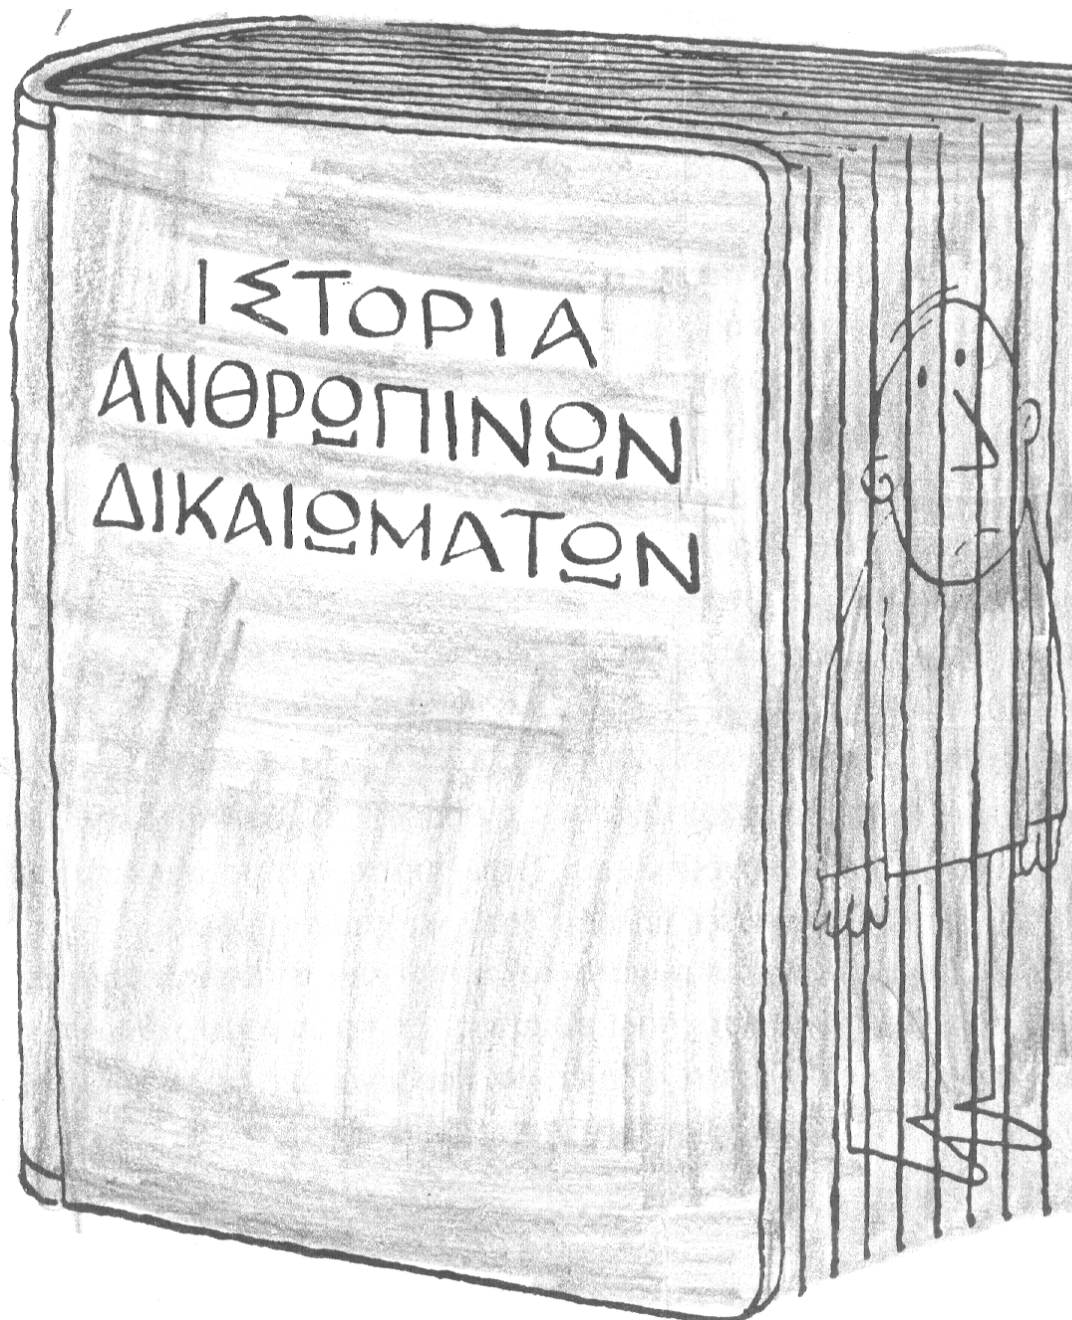 ΙΣΤΟΡΙΑ
ΑΝΘΡΩΠΙΝΩΝ
ΔΙΚΑΙΩΜΑΤΩΝ